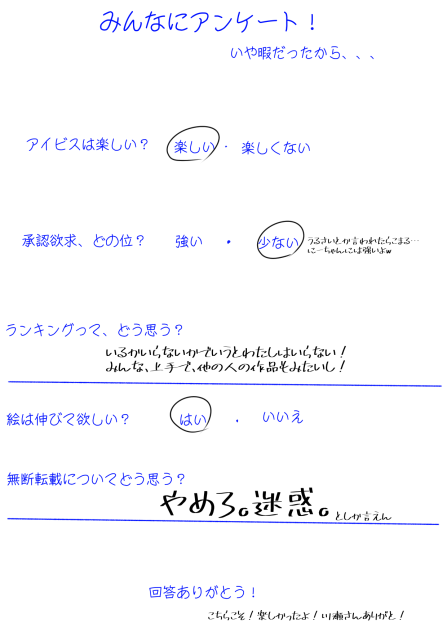 みんなにアンケート！
いや暇だったから、、、
アイビスは楽しい？ 楽しい ・ 楽しくない
承認欲求、どの位？ 強い ・ 少ない うるさいとか言われたらこまる…
にーちゃんには強いよw
ランキングって、どう思う？
いるかいらないかでいうとわたしはいらない！
みんな、上手で、他の人の作品もみたいし！
絵は伸びて欲しい？ はい ・ いいえ
無断転載についてどう思う？
やめろ。迷惑。としか言えん
回答ありがとう！
こちらこそ！楽しかったよ！川瀬さんありがと！